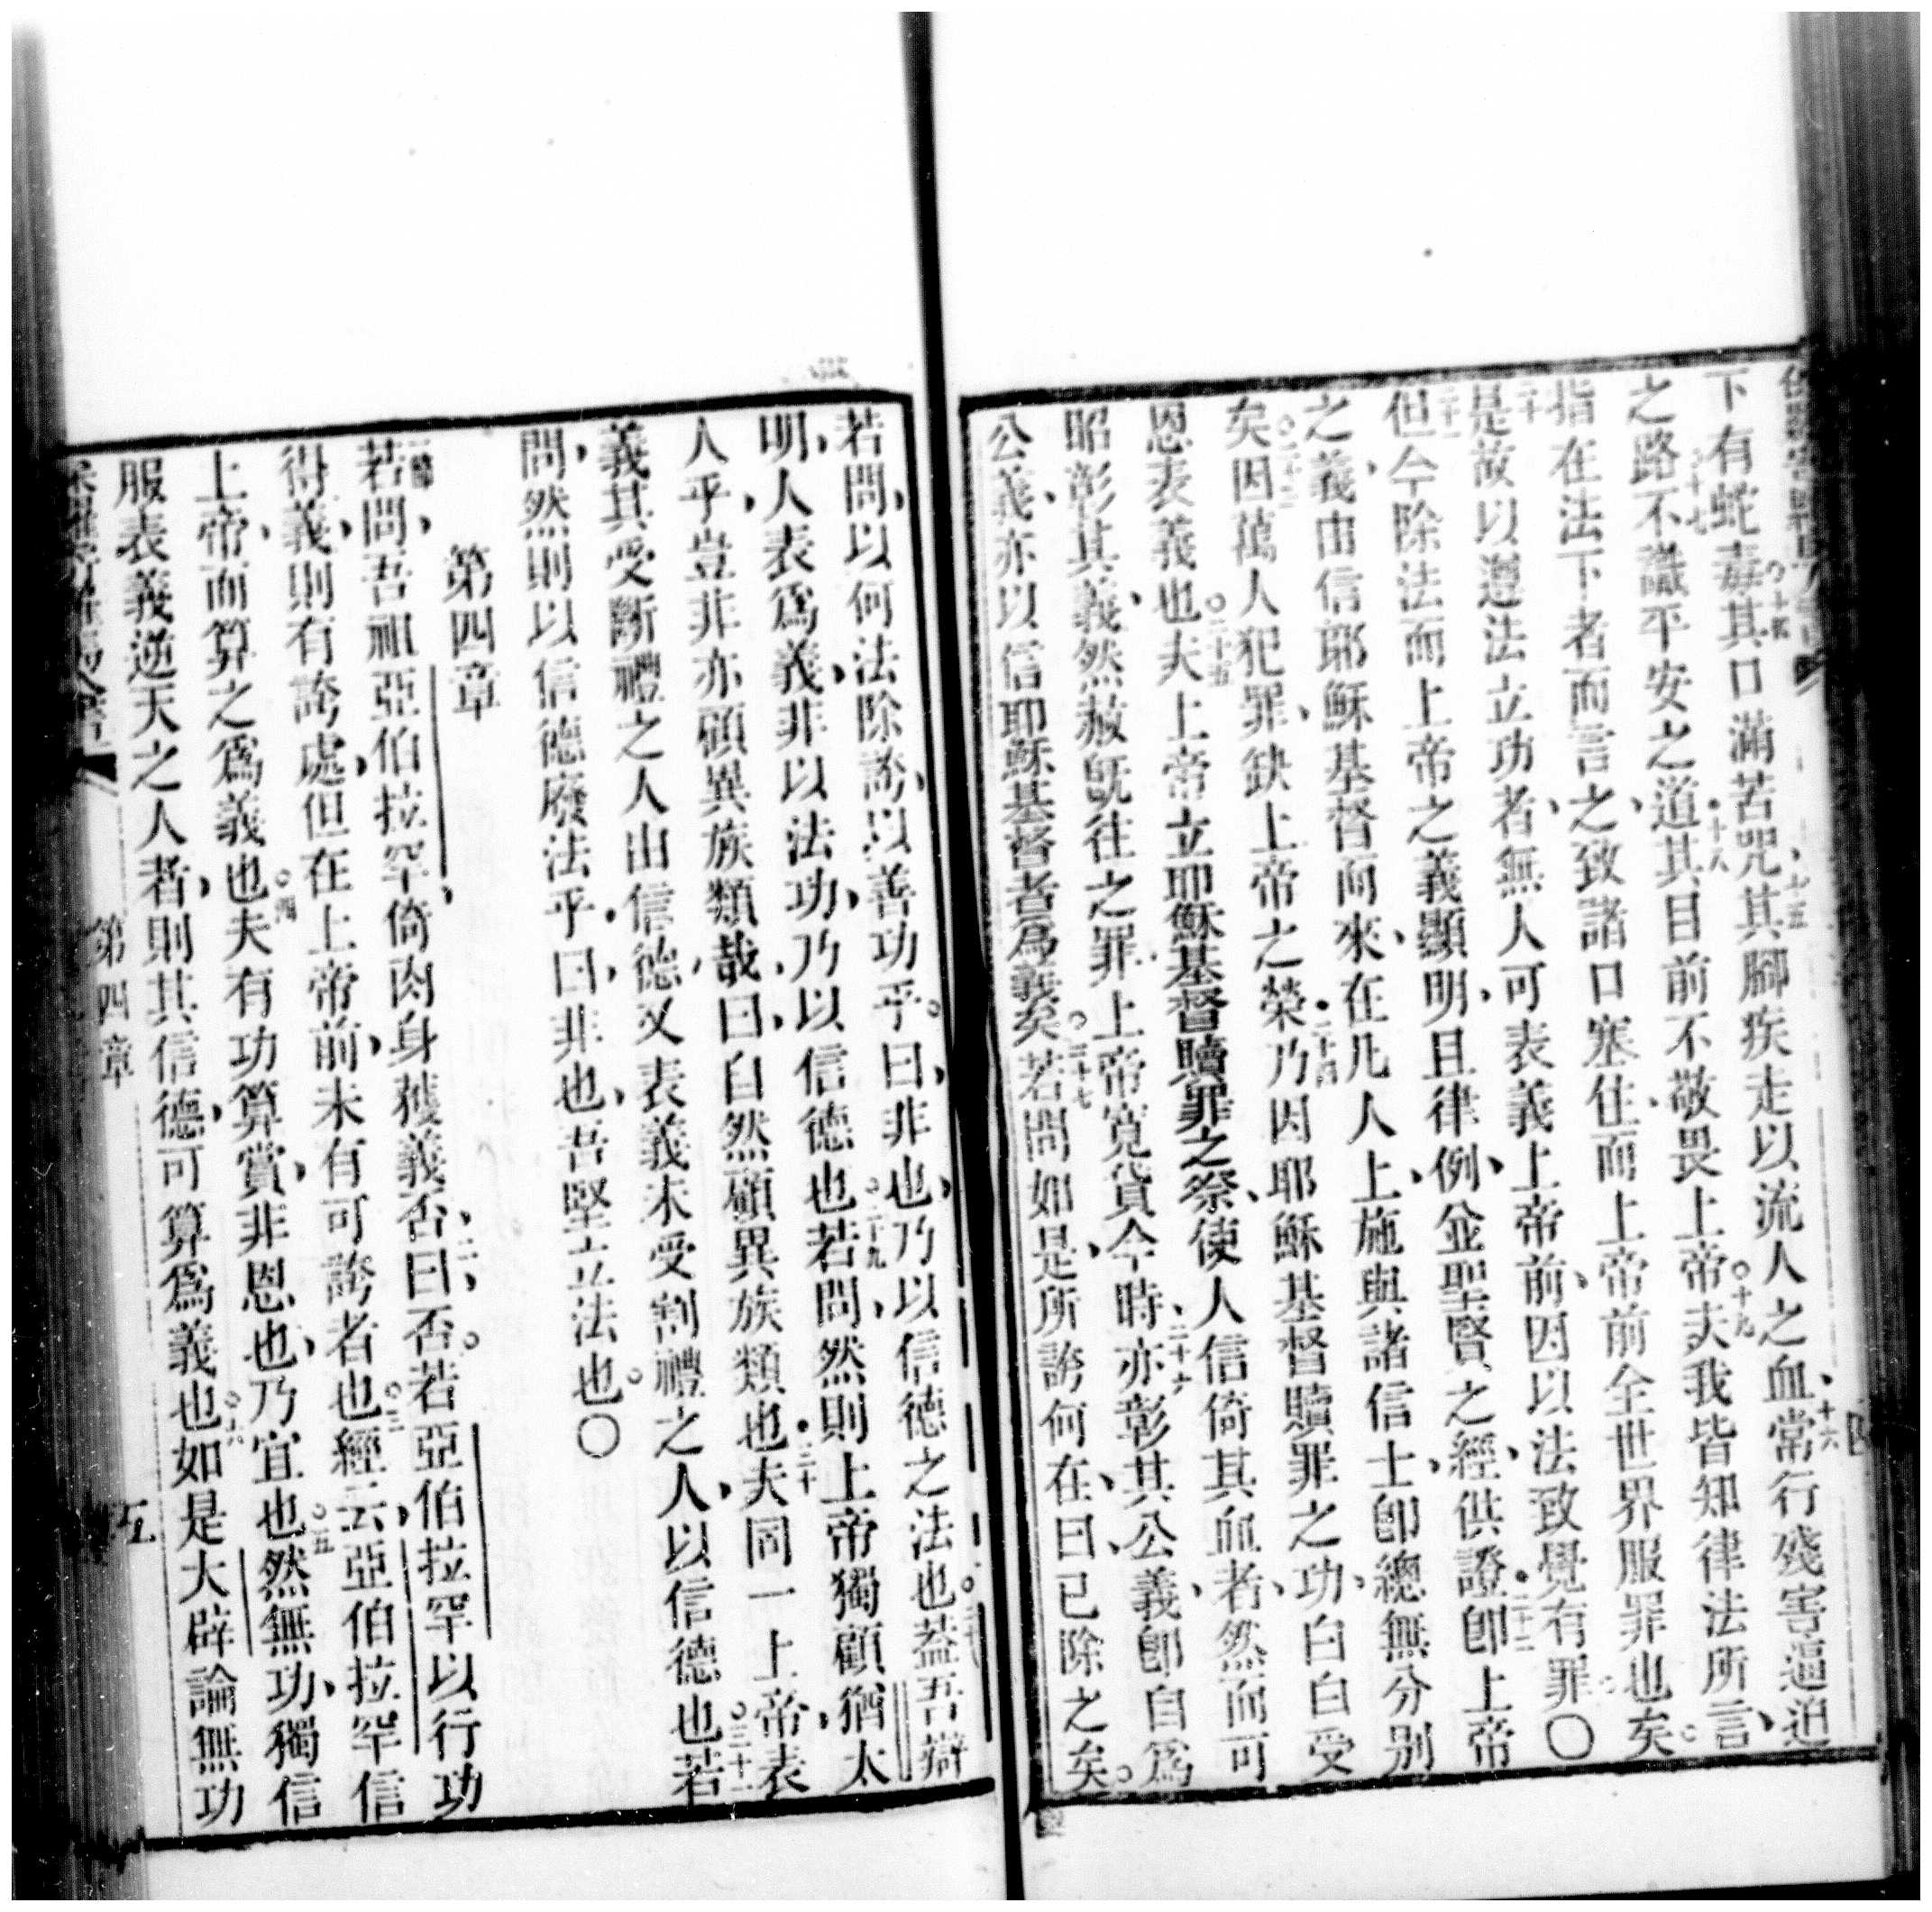 下有蛇毒其口滿苦咒其腳疾走以流人之血常行殘害逼迫
之路不識平安之道其目前不敬畏上帝夫我皆知律法所言
指在法下者而言之致諸口塞住而上帝前全世界服罪也矣
是故以遵法立功者無人可表義上帝前因以法致覺有罪〇
但今除法而上帝之義顯明且律例並聖賢之經供證卽上帝
之義由信耶穌基督而來在凡人上施與諸信士卽總無分別
矣因萬人犯罪缺上帝之榮乃因耶穌基督贖罪之功白白受
恩表義也夫上帝立耶穌基督贖罪之祭使人信倚其血者然而可
昭彰其義然赦旣往之罪上帝寬貸今時亦彰其公義卽自爲
公義亦以信耶穌基督者爲義矣若問如是所誇何在曰已除之矣
若問以何法除訟以善功乎曰非也乃以信德之法也蓋吾辯
明人表爲義非以法功乃以信德也若問然則上帝獨顧猶太
人乎豈非亦顧異族類哉曰自然顧異族類也夫同一上帝表
義其受斷禮之人由信德又表義未受割禮之人以信德也若
問然則以信德廢法乎曰非也吾堅立法也〇
第四章
若問吾祖亞伯拉罕倚肉身獲義否曰否若亞伯拉罕以行功
得義則有誇處但在上帝前未有可誇者也經云亞伯拉罕信
上帝而算之爲義也夫有功算賞非恩也乃宜也然無功獨信
服表義逆天之人者則其信德可算爲義也如是大辟論無功
第四章
五
四